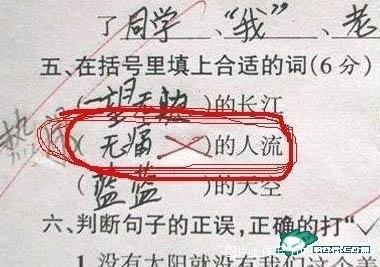 了同学、“我”、老
五、在括号里填上合适的词(6分)
(一望无际)的长江
热闹
(无痛)的人流
(蓝蓝)的天空
六、判断句子的正误,正确的打“✓
1.没有太阳就没有我们这个美